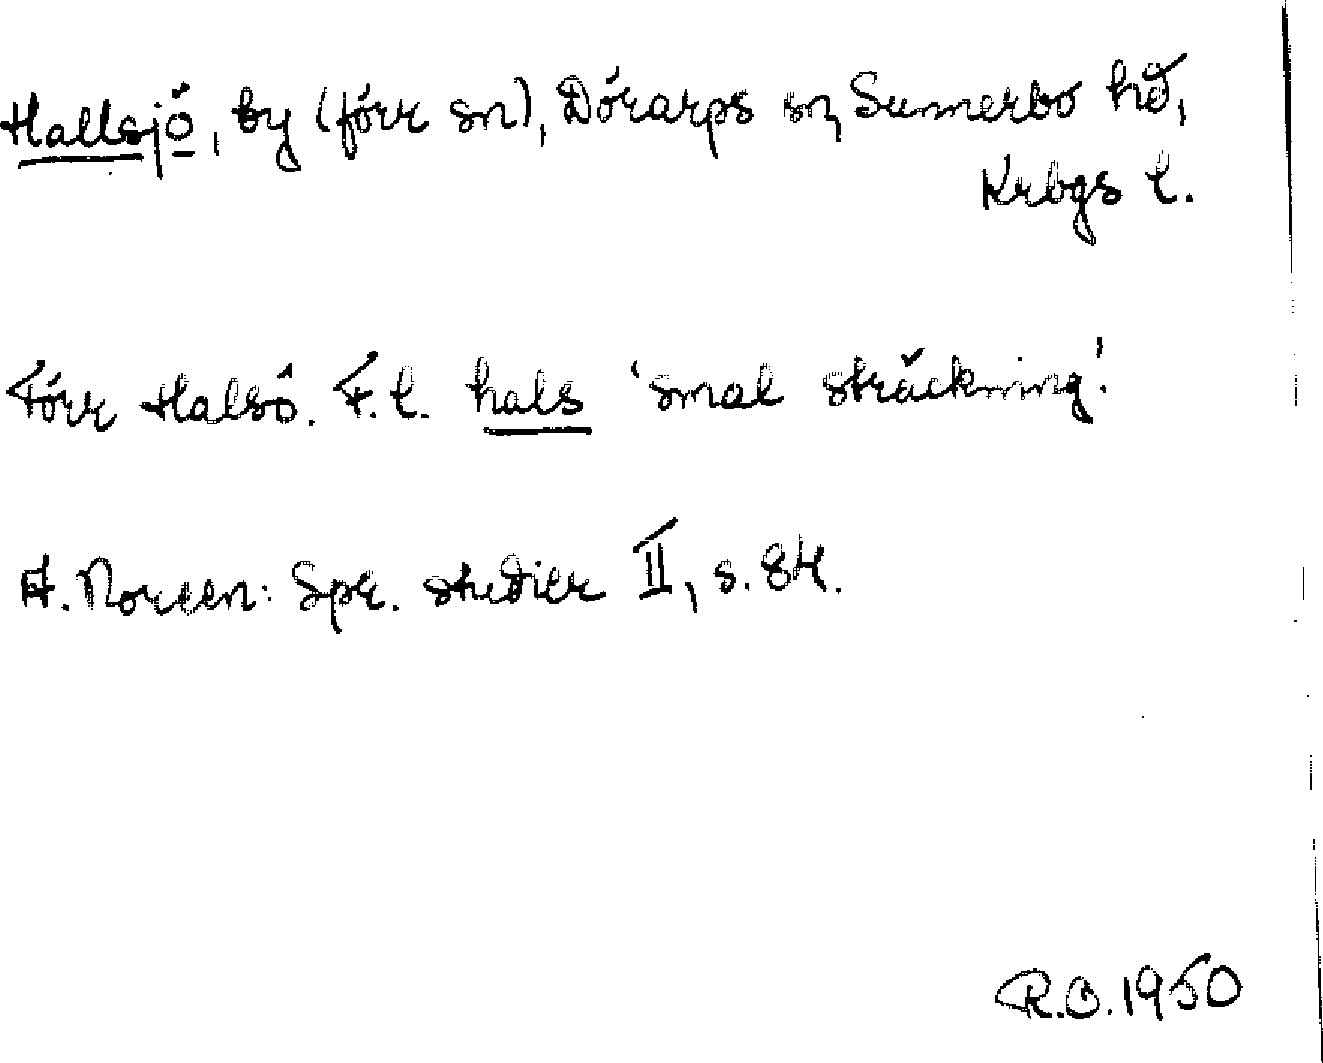 Hallsjö, by (förr sn), Dörarps sn, Sunnerbo hd,
Krbgs l.
Förr Halsö. F.l. hals 'smal sträckning'.
A. Noreen: Spr. studier II, s. 84.
R.O. 1950